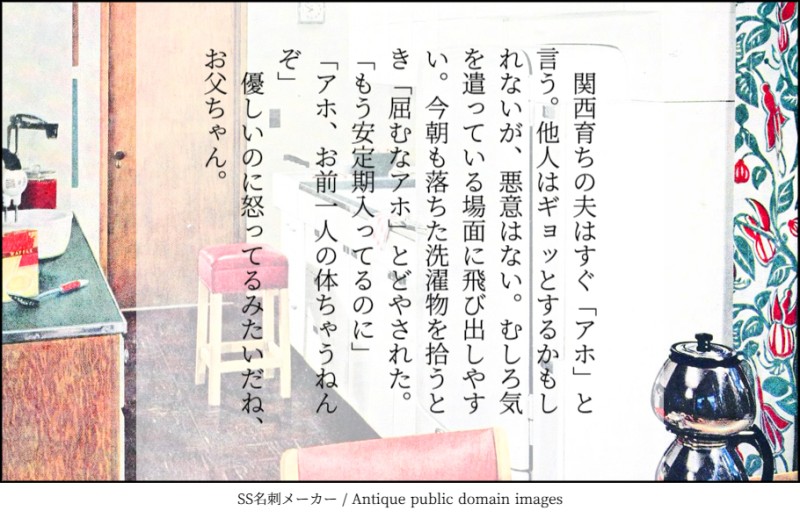 関西育ちの夫はすぐ「アホ」と
言う。他人はギョッとするかもし
れないが、悪意はない。むしろ気
を遣っている場面に飛び出しやす
い。今朝も落ちた洗濯物を拾うと
き「屈むなアホ」とどやされた。
「もう安定期入ってるのに」
「アホ、お前一人の体ちゃうねん
ぞ」
優しいのに怒ってるみたいだね、
お父ちゃん。
SS名刺メーカー / Antique public domain images